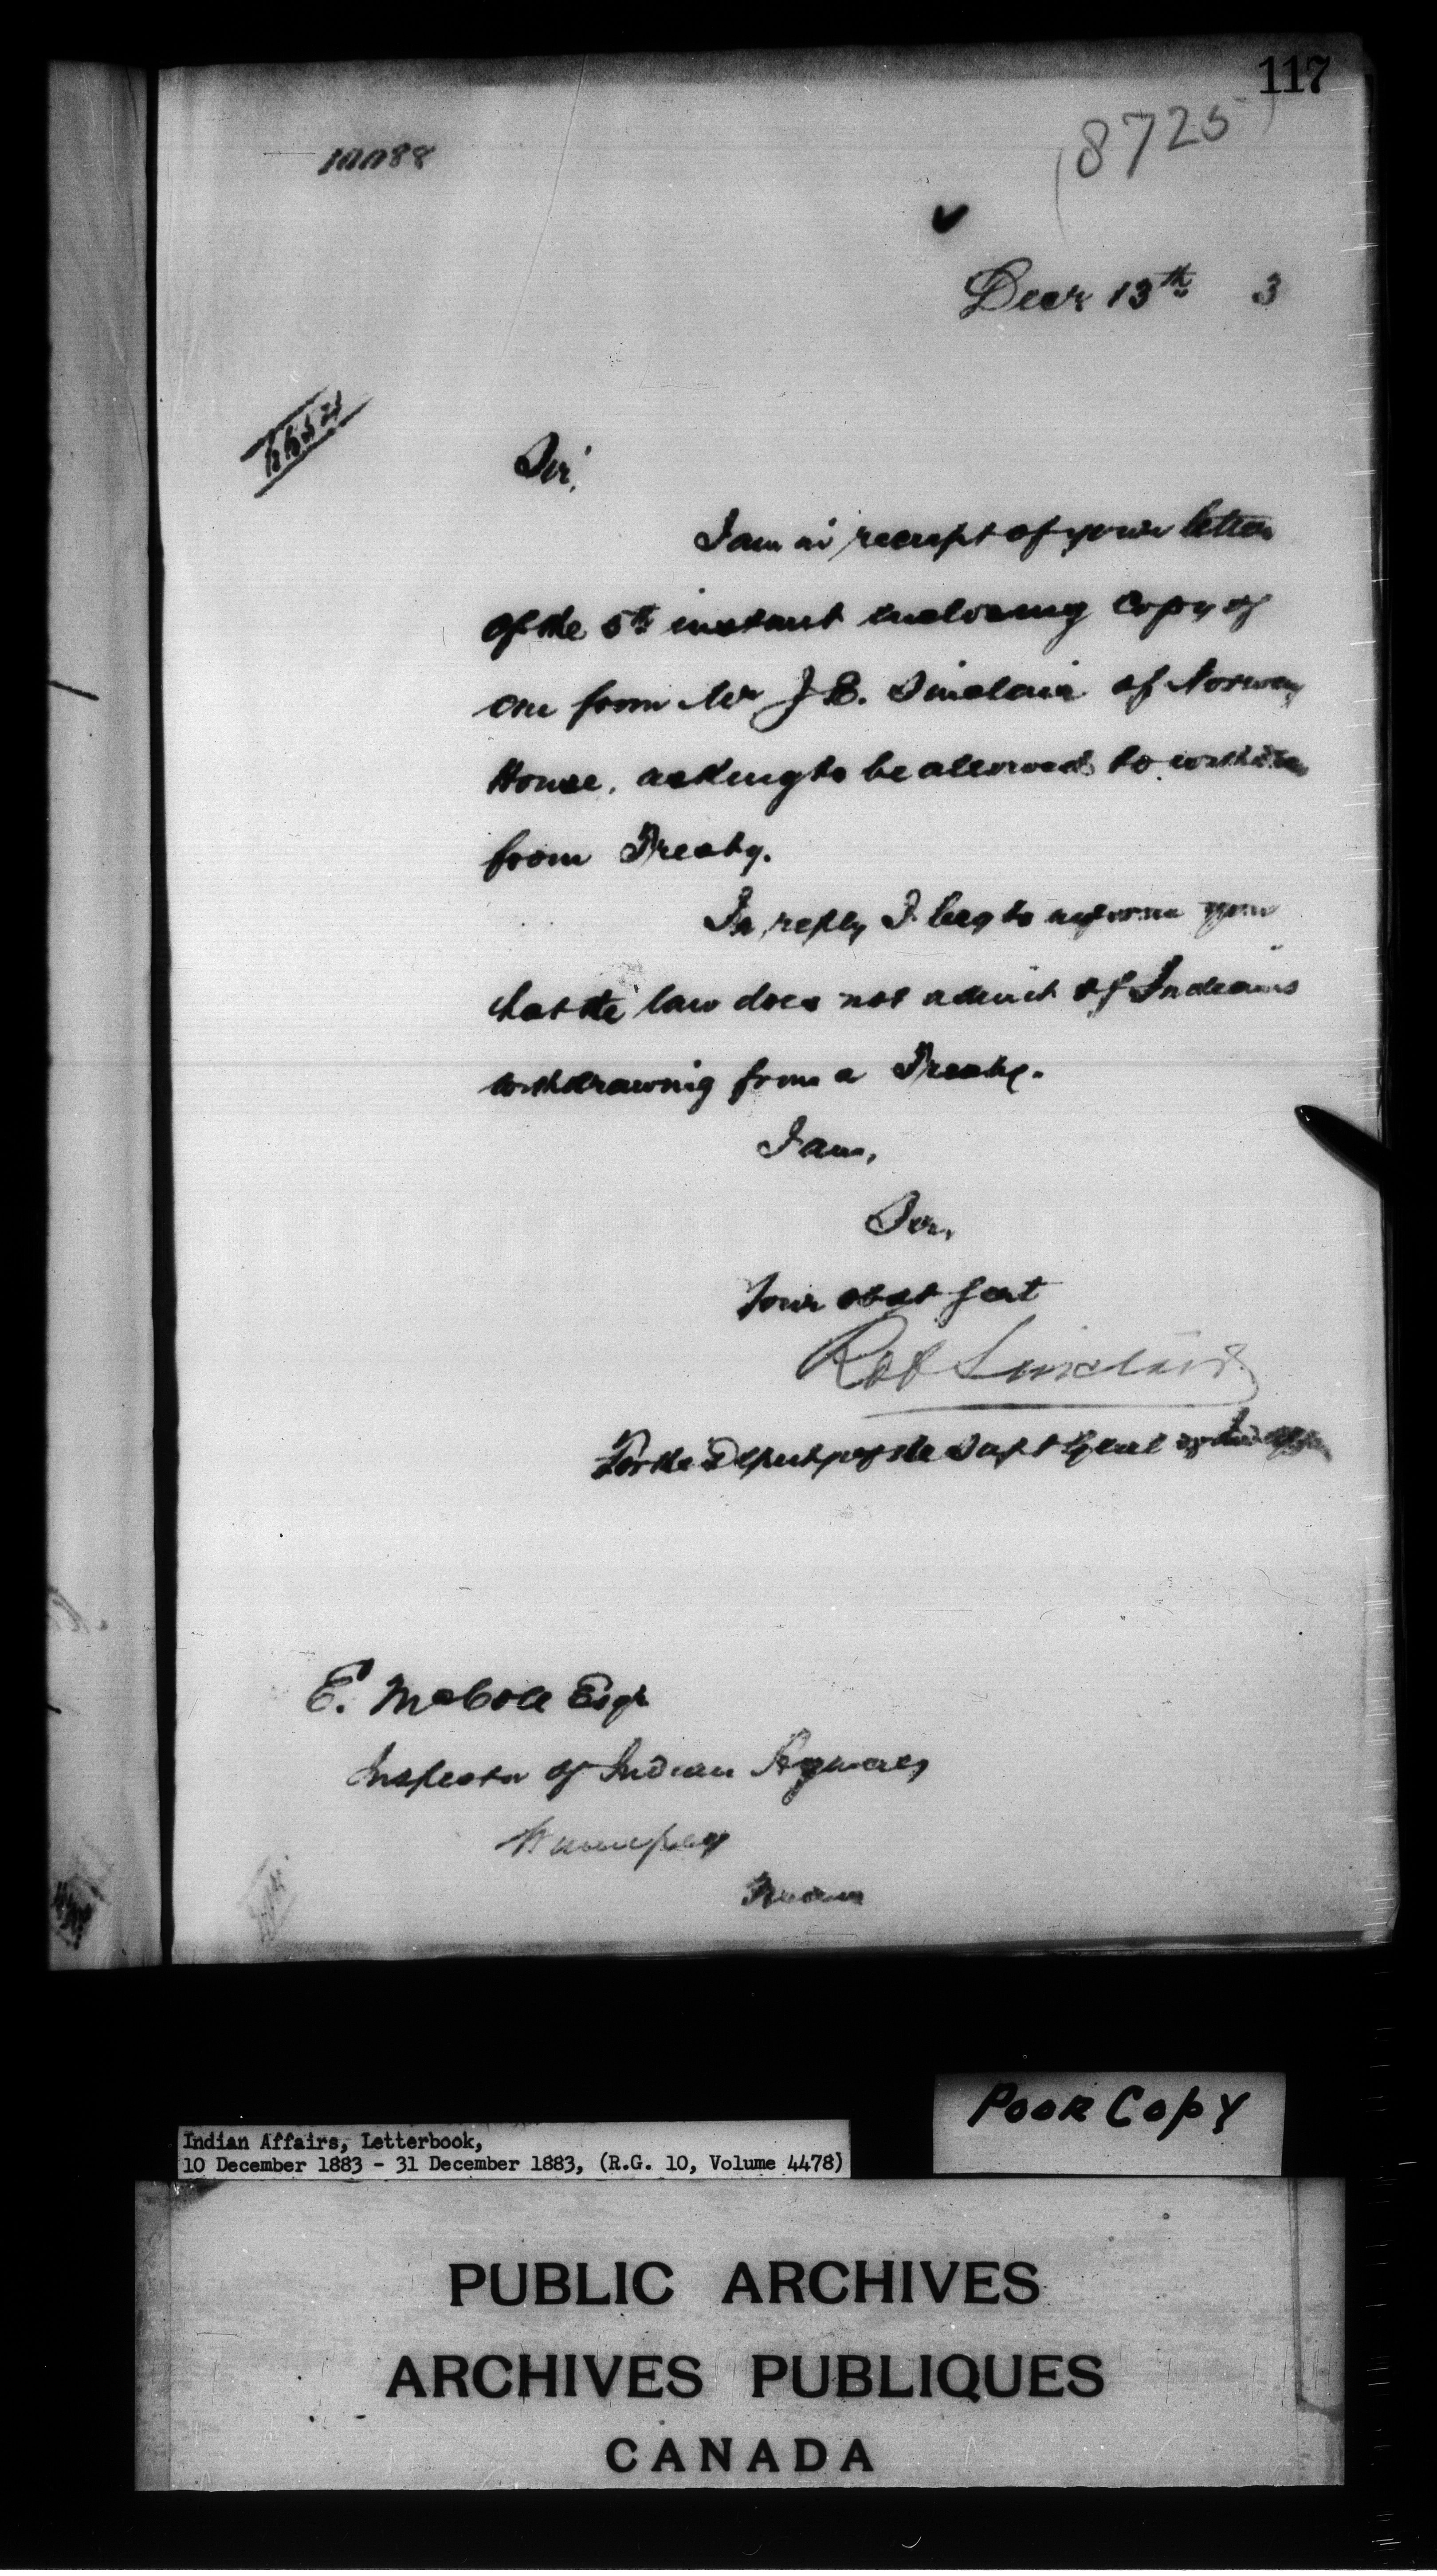 117
8725
Decr 13th 3
Sir,
I am in receipt of your letter
of the 5th instant enclosing copy of
one from Mr J.E. Sinclair of Norway
House, asking to be allowed to withdraw
from Treaty.
In reply I beg to inform you
that the law does not admit of Indians
withdrawing from a Treaty.
I am,
Sir,
Your obdt Servt
Rob Sinclair
For the Deputy of the Supt Genl of Ind Affrs
E. McColl Esqr
Inspector of Indian Agencies
Winnipeg
Poor Copy
Indian Affairs, Letterbook,
10 December 1883 - 31 December 1883, (R.G. 10, Volume 4478)
PUBLIC ARCHIVES
ARCHIVES PUBLIQUES
CANADA